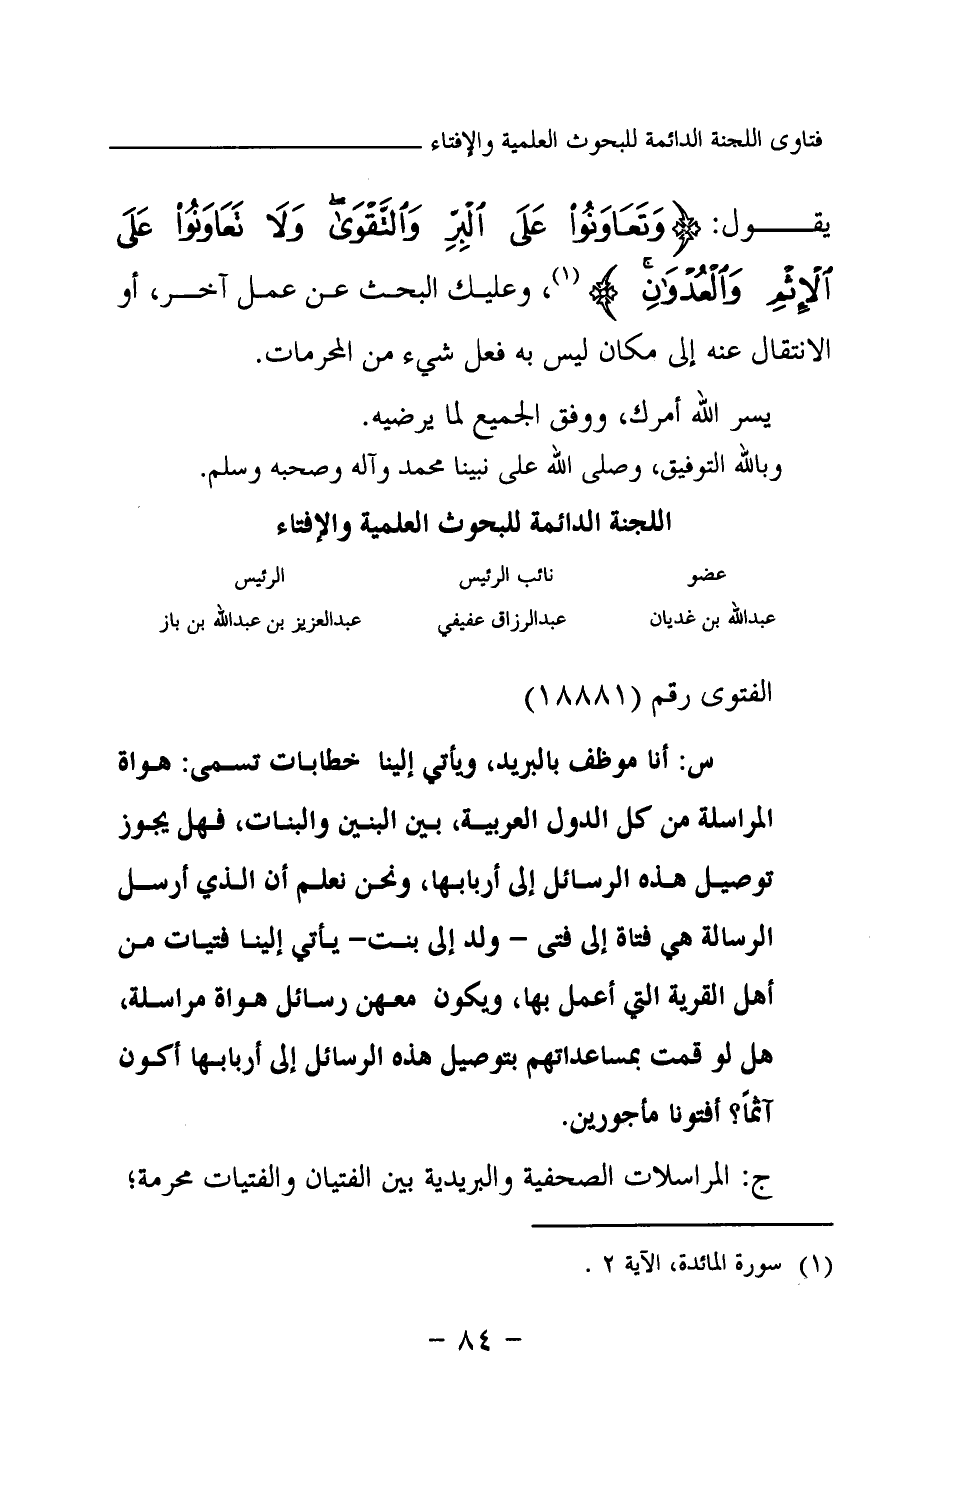 فتاوى اللجنة الدائمة للبحوث العلمية والإفتاء
يقـــــول: ﴿وَتَعَاوَنُواْ عَلَى ٱلۡبِرِّ وَٱلتَّقۡوَىٰۖ وَلَا تَعَاوَنُواْ عَلَى
ٱلۡإِثۡمِ وَٱلۡعُدۡوَٰنِۚ﴾(١)، وعليك البحث عن عمل آخر، أو
الانتقال عنه إلى مكان ليس به فعل شيء من المحرمات.
يسر الله أمرك، ووفق الجميع لما يرضيه.
وبالله التوفيق، وصلى الله على نبينا محمد وآله وصحبه وسلم.
اللجنة الدائمة للبحوث العلمية والإفتاء
عضو نائب الرئيس الرئيس
عبدالله بن غديان عبدالرزاق عفيفي عبدالعزيز بن عبدالله بن باز
الفتوى رقم (١٨٨٨١)
س: أنا موظف بالبريد، ويأتي إلينا خطابات تسمى: هواة
المراسلة من كل الدول العربية، بين البنين والبنات، فهل يجوز
توصيل هذه الرسائل إلى أربابها، ونحن نعلم أن الذي أرسل
الرسالة هي فتاة إلى فتى – ولد إلى بنت– يأتي إلينا فتيات من
أهل القرية التي أعمل بها، ويكون معهن رسائل هواة مراسلة،
هل لو قمت بمساعداتهم بتوصيل هذه الرسائل إلى أربابها أكون
آثمًا؟ أفتونا مأجورين.
ج: المراسلات الصحفية والبريدية بين الفتيان والفتيات محرمة؛
(١) سورة المائدة، الآية ٢ .
– ٨٤ –